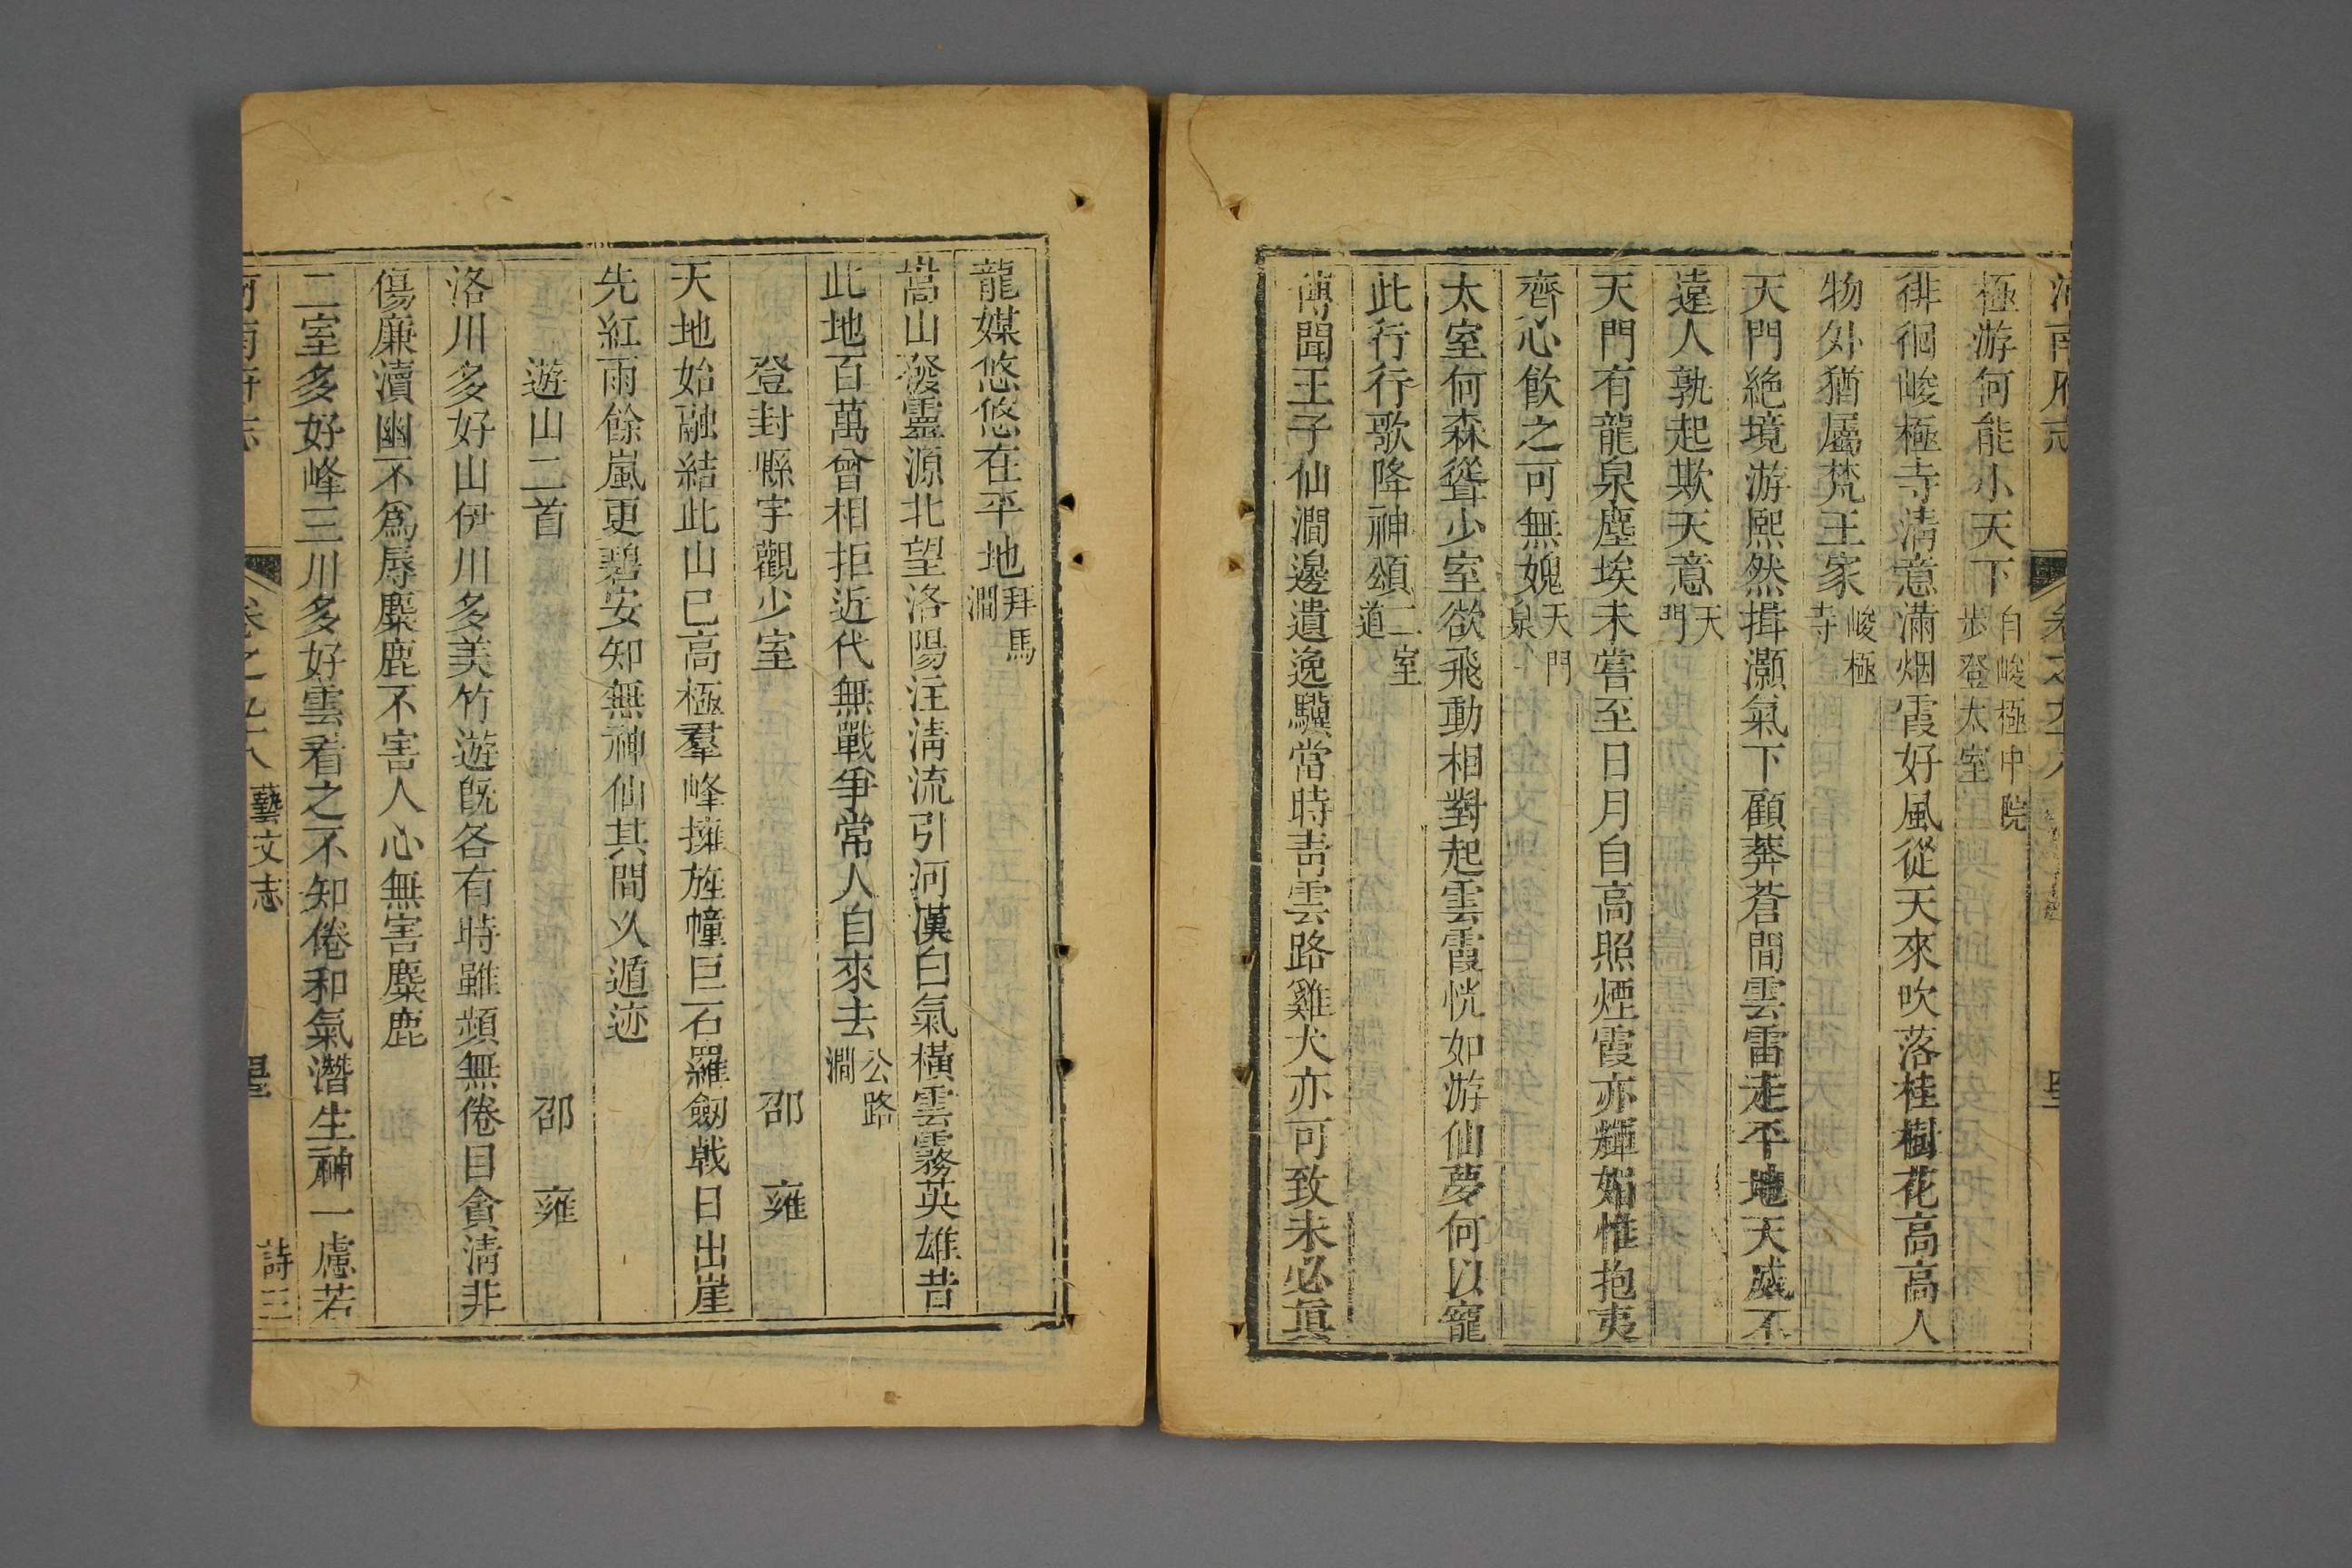 河南府志 卷之九十八
極游何能小天下自峻極中院步登太室
徘徊峻極寺清意滿烟霞好風從天來吹落桂樹花高高人
物外猶屬梵王家峻極寺
天門絶境游熙然揖灝氣下顧莽蒼間雲雷走平地天威不
遠人孰起欺天意天門
天門有龍泉塵埃未嘗至日月自高照煙霞亦輝媚惟抱夷
齊心飲之可無媿天門泉
太室何森聳少室欲飛動相對起雲霞恍如游仙夢何以寵
此行行歌降神頌二室道
傳聞王子仙澗邊遺逸驥當時靑雲路雞犬亦可致未必眞
龍媒悠悠在平地拜馬澗
嵩山發靈源北望洛陽注淸流引河漢白氣橫雲霧英雄昔
此地百萬曾相拒近代無戰爭常人自來去公路澗
登封縣宇觀少室 邵雍
天地始融結此山已高極羣峰擁旌幢巨石羅劒戟日出崖
先紅雨餘嵐更碧安知無神仙其間久遁迹
遊山二首 邵雍
洛川多好山伊川多美竹遊既各有時雖頻無倦目貪淸非
傷廉瀆幽不爲辱麋鹿不害人心無害麋鹿
二室多好峰三川多好雲看之不知倦和氣潛生神一慮若
河南府志 卷之九十八 藝文志 詩三